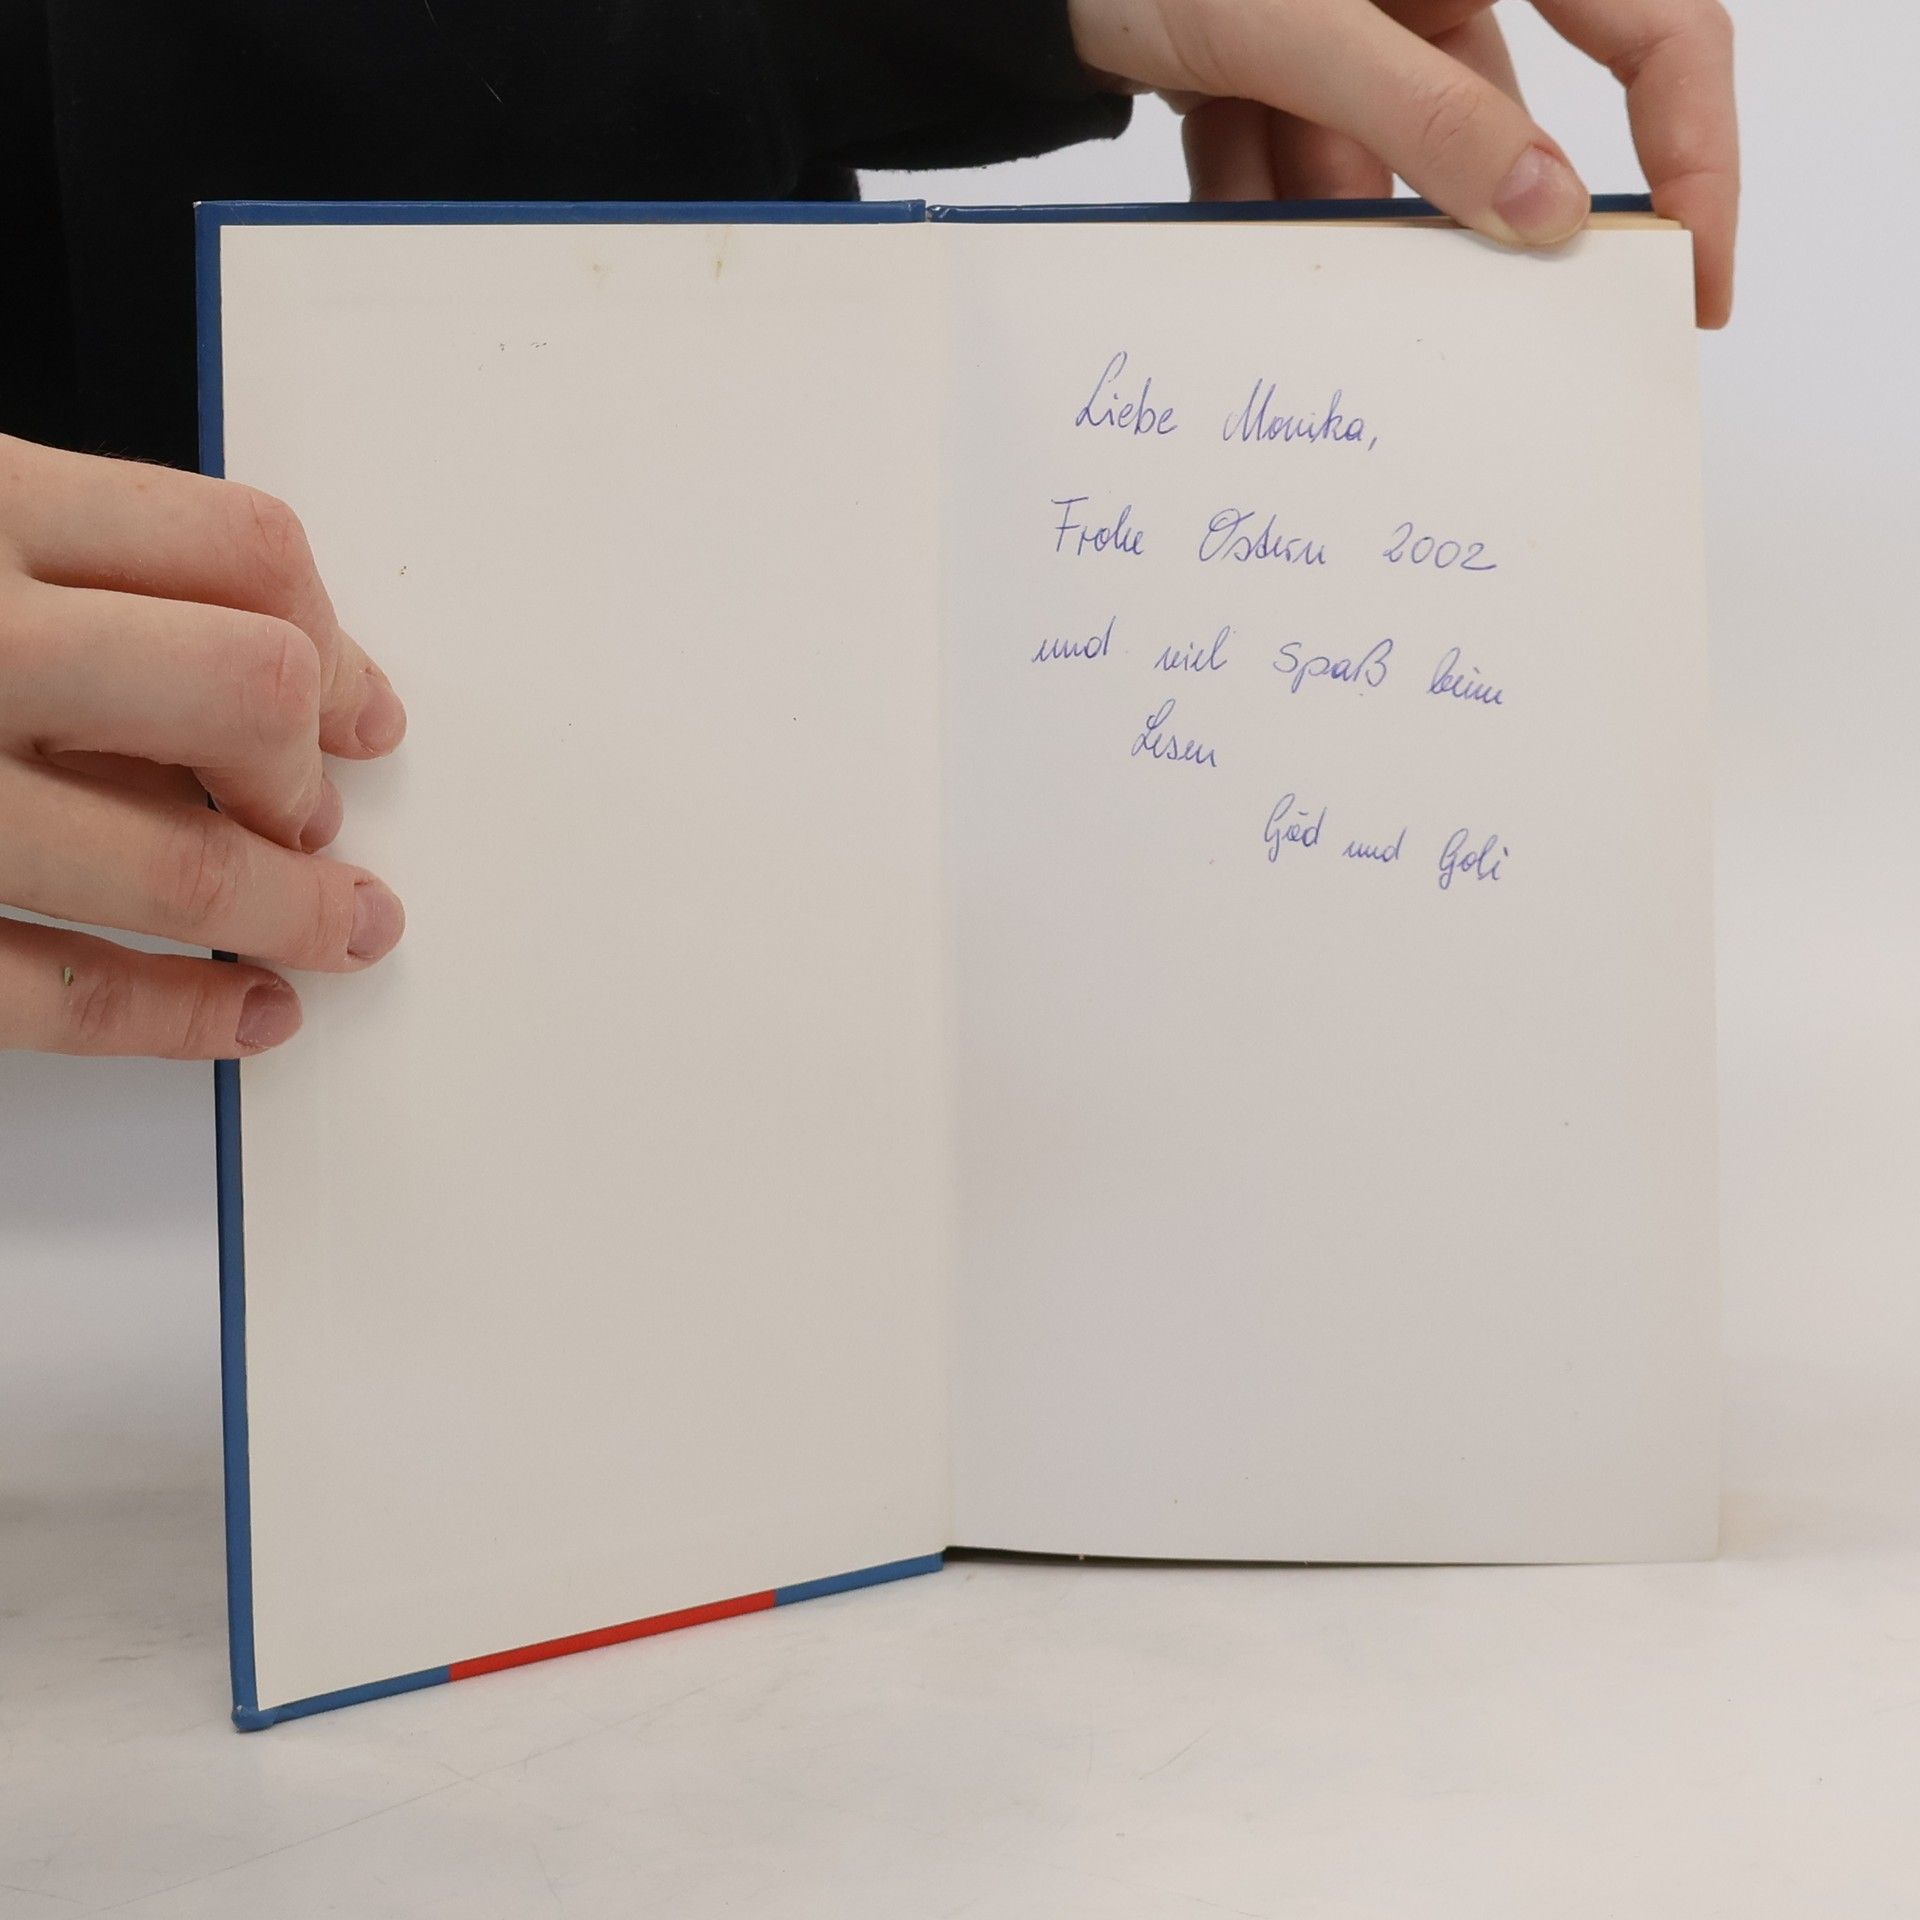 Liebe Monika,
Frohe Ostern 2002
und viel Spaß beim
Lesen
Göd und Goli